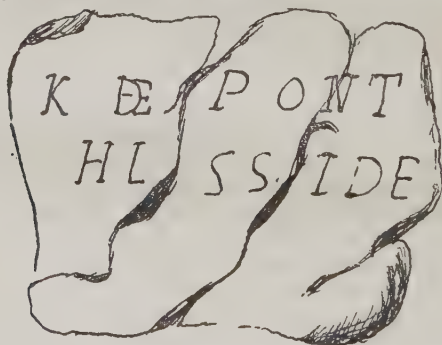 K DE P O N T
HI SS. IDE